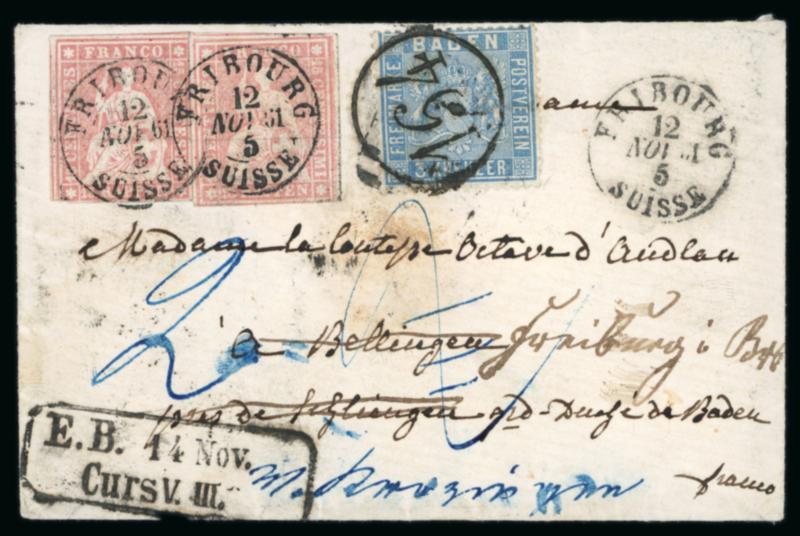 FRANCO FRANCO BADEN
FRIBOURG 12 NOV 61 5 SUISSE
FRIBOURG 12 NOV 61 5 SUISSE
FREIMARKE POSTVEREIN
3 KREUZER
FRIBOURG 12 NOV 61 5 SUISSE
Madame la Comtesse Octave d'Andlau
à Bellingen Freiburg i Brg
près de Schliengen grd-Duché de Baden
franco
E.B. 14 Nov.
Curs V. III.